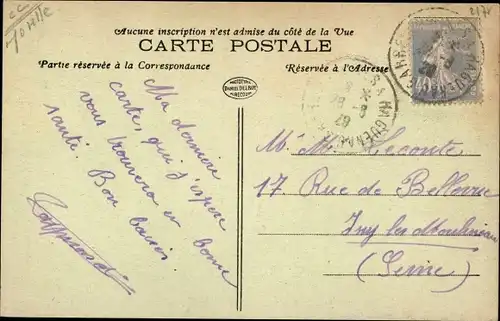 Aucune inscription n'est admise du côté de la Vue
CARTE POSTALE
Partie réservée à la Correspondance
Réservée à l'Adresse
DANIEL DELBOY
Ma dernière
carte, qui j'espère
vous trouvera en bonne
santé. Bon baisers
HAGUENAU
M. M. Leconte
17 Rue de Bellevue
Issy les Moulineaux
(Seine)